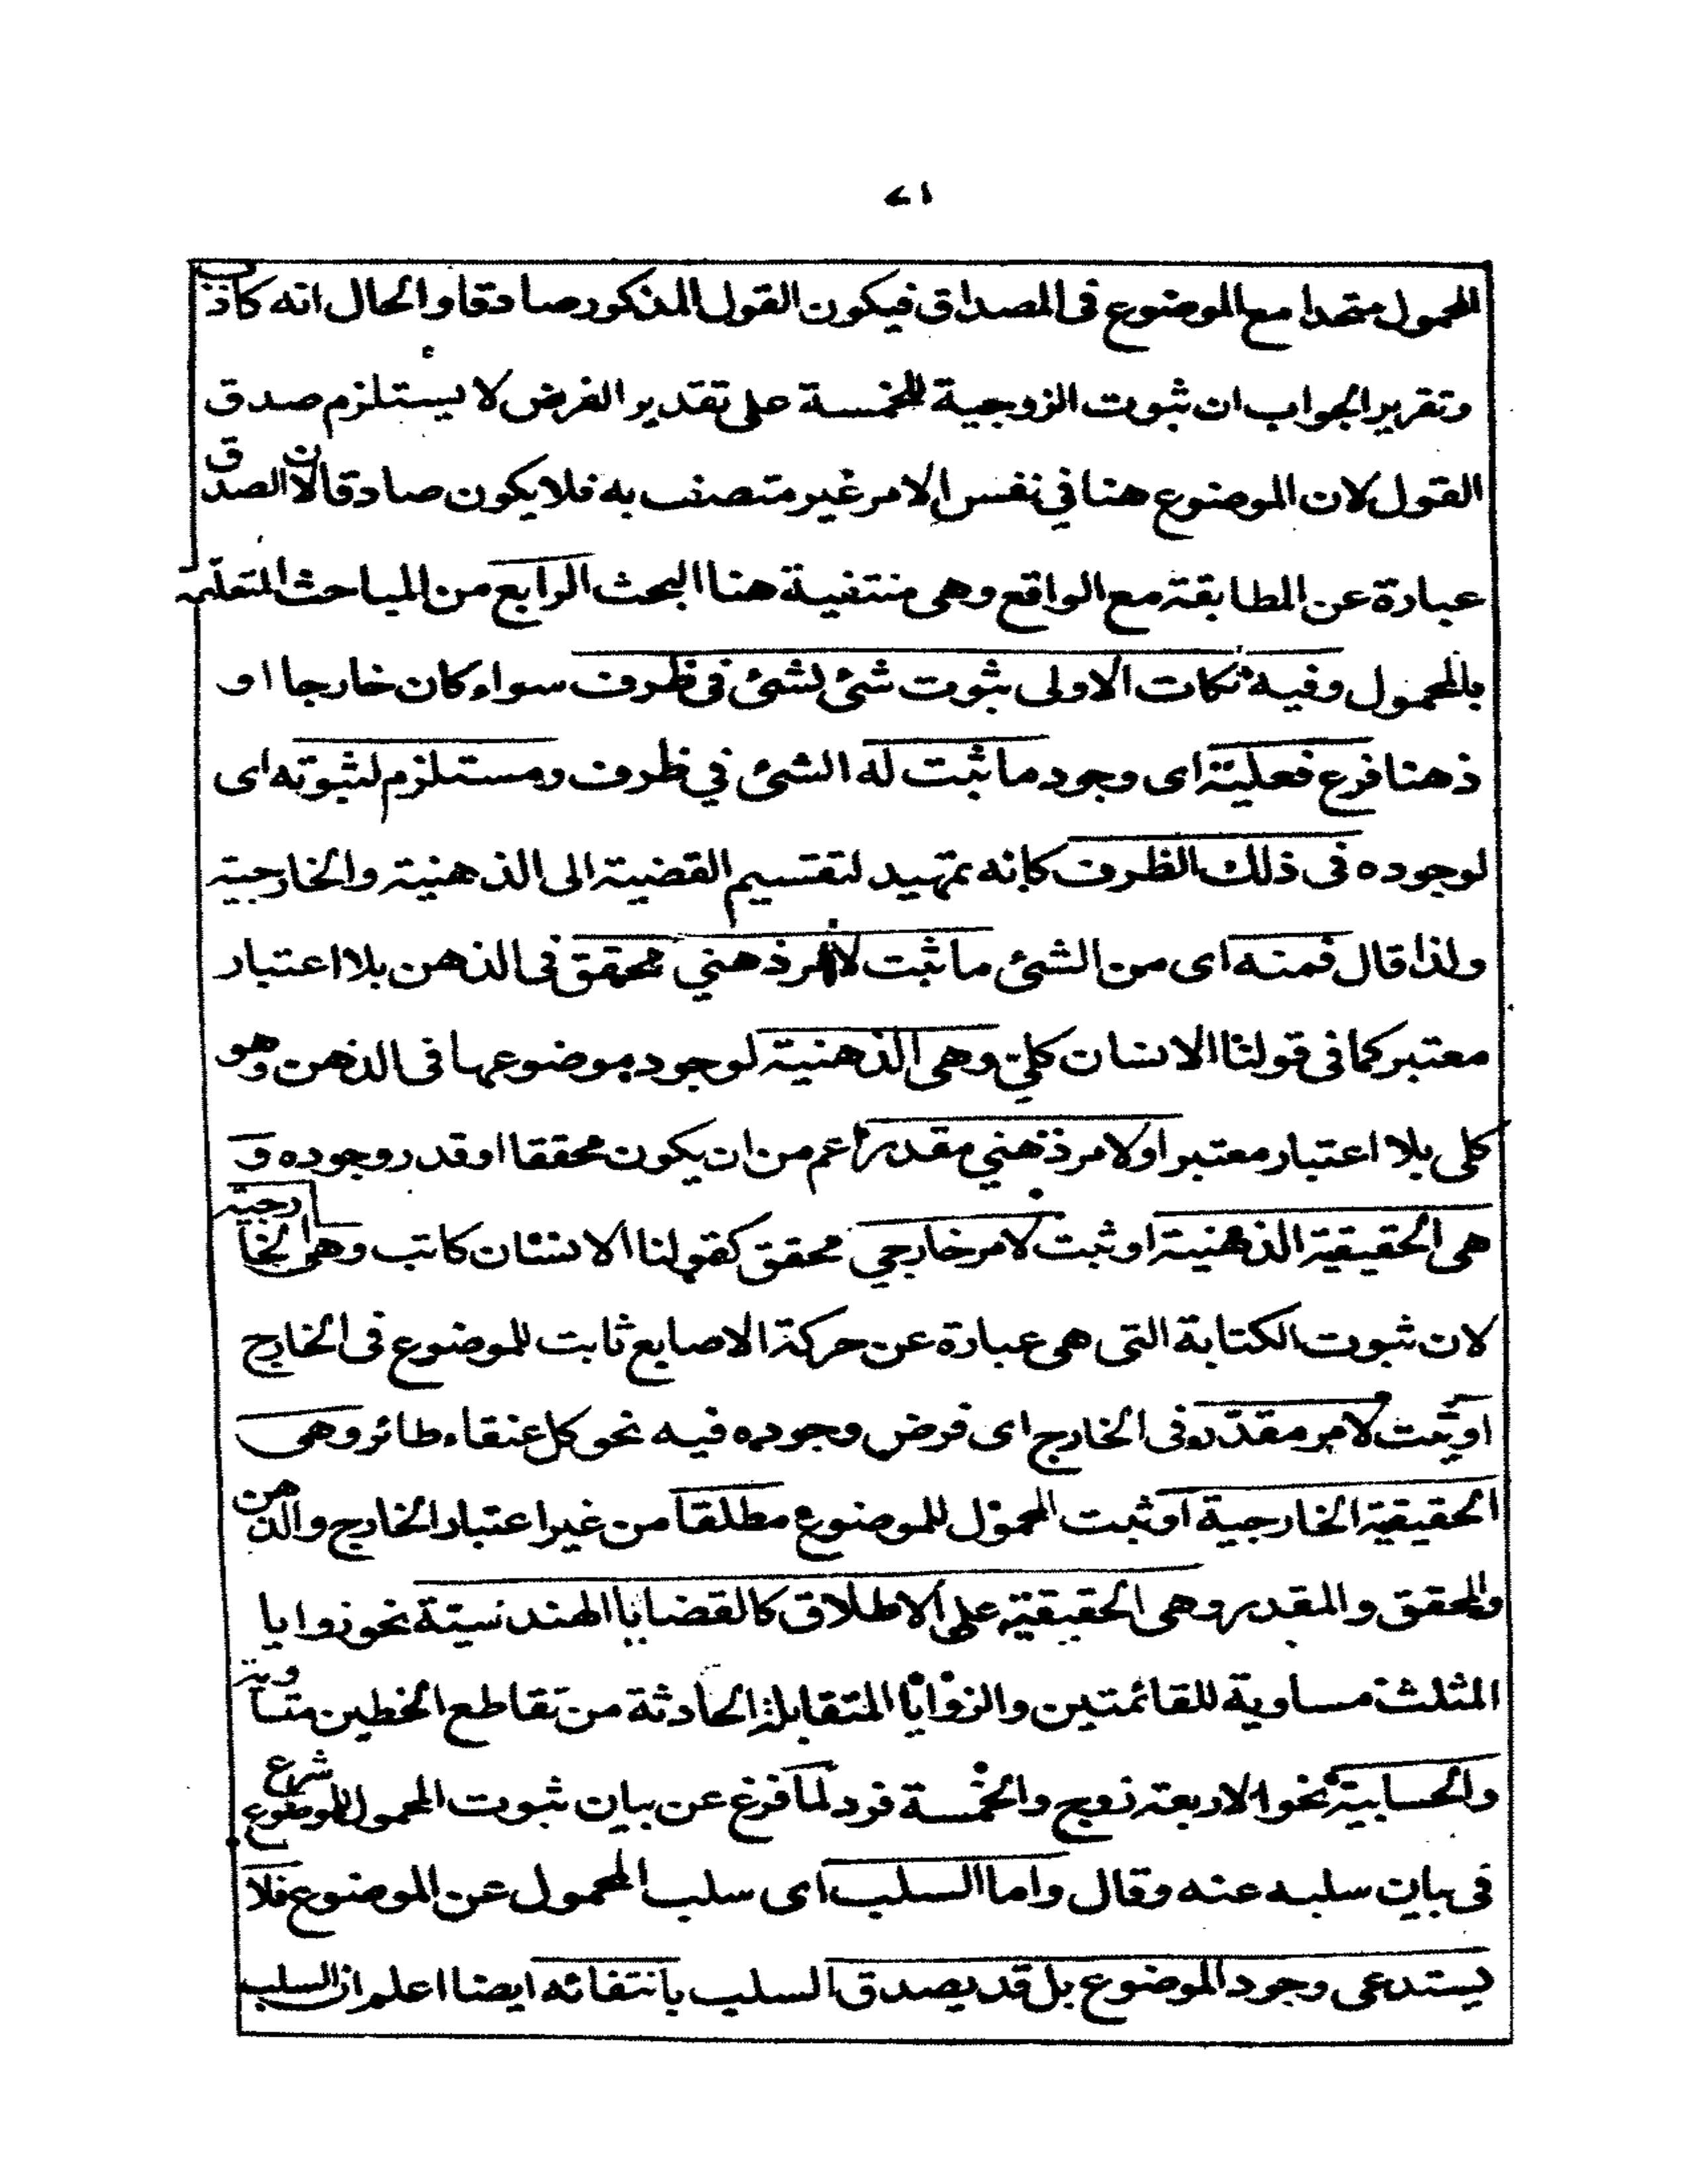 ٧١
المحمول متحدا مع الموضوع فى المصداق فيكون القول المذكور صادقا والحال انه كاذب
وتقرير الجواب ان ثبوت الزوجية للخمسة على تقدير الفرض لا يستلزم صدق
القول لان الموضوع هنا في نفس الامر غير متصف به فلا يكون صادقا لان الصدق
عبارة عن المطابقة مع الواقع وهى منتفية هنا البحث الرابع من المباحث المتعلقة
بالمحمول وفيه نكات الاولى ثبوت شئ لشئ فى ظرف سواء كان خارجا او
ذهنا فرع فعلية اى وجود ما ثبت له الشئ في ظرف ومستلزم لثبوته اى
لوجوده فى ذلك الظرف كانه تمهيد لتقسيم القضية الى الذهنية والخارجية
ولذا قال فمنه اى من الشئ ما ثبت لامر ذهني محقق فى الذهن بلا اعتبار
معتبر كما فى قولنا الانسان كلي وهى الذهنية لوجود موضوعها فى الذهن وهو
كلى بلا اعتبار معتبر او لامر ذهني مقدر اعم من ان يكون محققا او قدر وجوده و
هى الحقيقية الذهنية او ثبت لامر خارجي محقق كقولنا الانسان كاتب وهى الخارجية
لان ثبوت الكتابة التى هى عبارة عن حركة الاصابع ثابت للموضوع فى الخارج
او ثبت لامر مقدّر فى الخارج اى فرض وجوده فيه نحو كل عنقاء طائر وهى
الحقيقية الخارجية او ثبت المحمول للموضوع مطلقا من غير اعتبار الخارج والذهن
والمحقق والمقدر وهى الحقيقية على الاطلاق كالقضايا الهندسية نحو زوايا
المثلث مساوية للقائمتين والزوايا المتقابلة الحادثة من تقاطع الخطين متساوية
والحسابية نحو الاربعة زوج والخمسة فرد لما فرغ عن بيان ثبوت المحمول للموضوع شرع
فى بيان سلبه عنه وقال واما السلب اى سلب المحمول عن الموضوع فلا
يستدعى وجود الموضوع بل قد يصدق السلب بانتفائه ايضا اعلم ان السلب